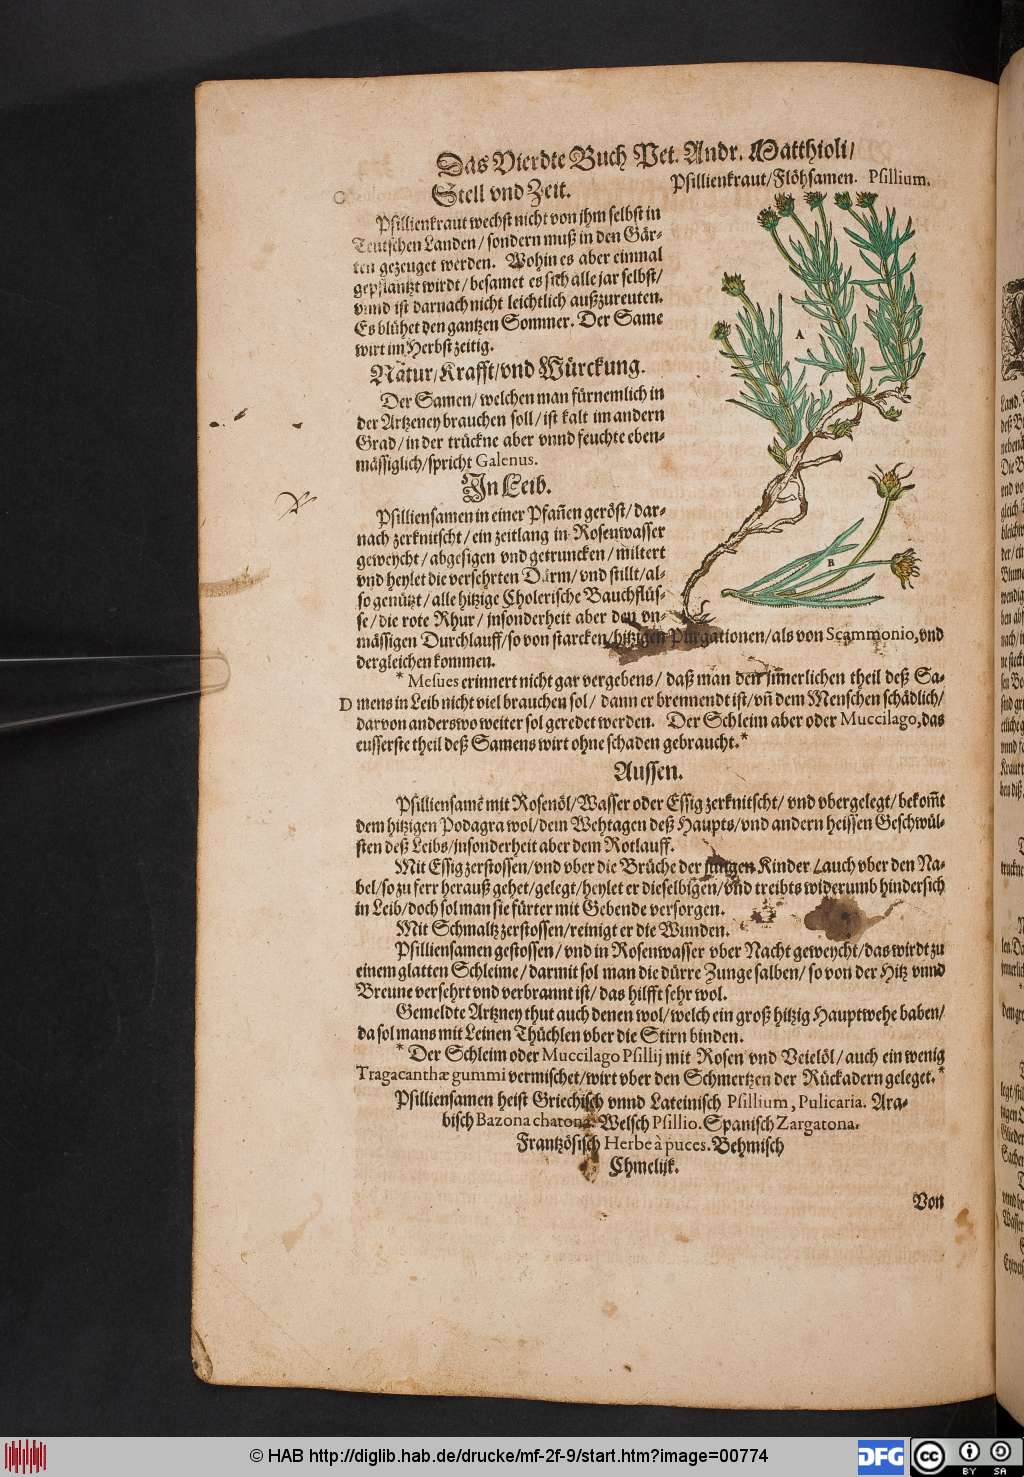 Das Vierdte Buch Pet. Andr. Matthioli/
C
Stell vnd Zeit.
Psillienkraut/Flöhsamen. Psillium.
Psillienkraut wechst nicht von jhm selbst in
Teutschen Landen/ sondern muß in den Gär-
ten gezeuget werden. Wohin es aber einmal
gepflantzt wirdt/ besamet es sich alle jar selbst/
vnnd ist darnach nicht leichtlich außzureuten.
Es blühet den gantzen Sommer. Der Same
wirt im Herbst zeitig.
Natur/Krafft/vnd Würckung.
Der Samen/ welchen man fürnemlich in
der Artzeney brauchen soll/ ist kalt im andern
Grad/ in der trückne aber vnnd feuchte eben-
mässiglich/spricht Galenus.
In Leib.
Psilliensamen in einer Pfañen geröst/ dar-
nach zerknitscht/ ein zeitlang in Rosenwasser
geweycht/ abgesigen vnd getruncken/ miltert
vnd heylet die versehrten Därm/ vnd stillt/ al-
so genützt/ alle hitzige Cholerische Bauchflüs-
se/ die rote Rhur/ jnsonderheit aber den vn-
mässigen Durchlauff/so von starcken/hitzigen Purgationen/als von Scammonio,vnd
dergleichen kommen.
* Mesues erinnert nicht gar vergebens/ daß man den innerlichen theil deß Sa-
D
mens in Leib nicht viel brauchen sol/ dann er brennendt ist/vñ dem Menschen schädlich/
darvon anderswo weiter sol geredet werden. Der Schleim aber oder Muccilago,das
eusserste theil deß Samens wirt ohne schaden gebraucht.*
Aussen.
Psilliensamē mit Rosenöl/Wasser oder Essig zerknitscht/ vnd vbergelegt/ bekom̃t
dem hitzigen Podagra wol/dem Wehtagen deß Haupts/vnd andern heissen Geschwül-
sten deß Leibs/jnsonderheit aber dem Rotlauff.
Mit Essig zerstossen/vnd vber die Brüche der jungen Kinder/ auch vber den Na-
bel/so zu ferr herauß gehet/gelegt/heylet er dieselbigen/vnd treibts widerumb hindersich
in Leib/doch sol man sie fürter mit Gebende versorgen.
Mit Schmaltz zerstossen/reinigt er die Wunden.
Psilliensamen gestossen/ vnd in Rosenwasser vber Nacht geweycht/das wirdt zu
einem glatten Schleime/ darmit sol man die dürre Zunge salben/ so von der Hitz vnnd
Breune versehrt vnd verbrannt ist/ das hilfft sehr wol.
Gemeldte Artzney thut auch denen wol/welch ein groß hitzig Hauptwehe haben/
da sol mans mit Leinen Thüchlen vber die Stirn binden.
* Der Schleim oder Muccilago Psillij mit Rosen vnd Veielöl/ auch ein wenig
Tragacanthæ gummi vermischet/wirt vber den Schmertzen der Rückadern geleget.*
Psilliensamen heist Griechisch vnnd Lateinisch Psillium, Pulicaria. Ara-
bisch Bazona chatona. Welsch Psillio. Spanisch Zargatona.
Frantzösisch Herbe à puces. Behmisch
Chmelijk.
Von
A
B
© HAB http://diglib.hab.de/drucke/mf-2f-9/start.htm?image=00774
DFG
cc
BY SA